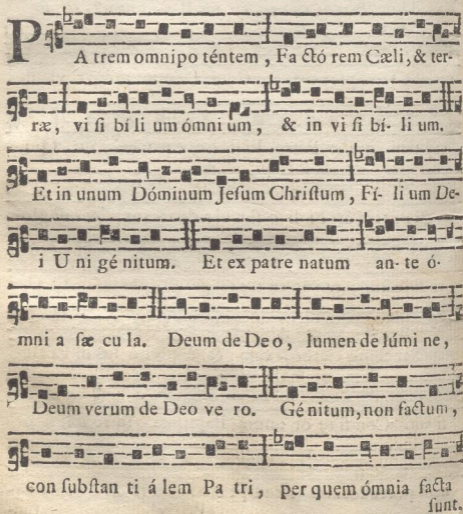 PA trem omnipo téntem, Fa ctó rem Cæli, & ter-
ræ, vi si bí li um ómni um, & in vi si bí- li um.
Et in unum Dóminum Jesum Christum, Fí- li um De-
i U ni gé nitum. Et ex patre natum an- te ó-
mni a sæ cu la. Deum de Deo, lumen de lúmi ne,
Deum verum de Deo ve ro. Gé nitum, non factum,
con substan ti á lem Pa tri, per quem ómnia facta
sunt.